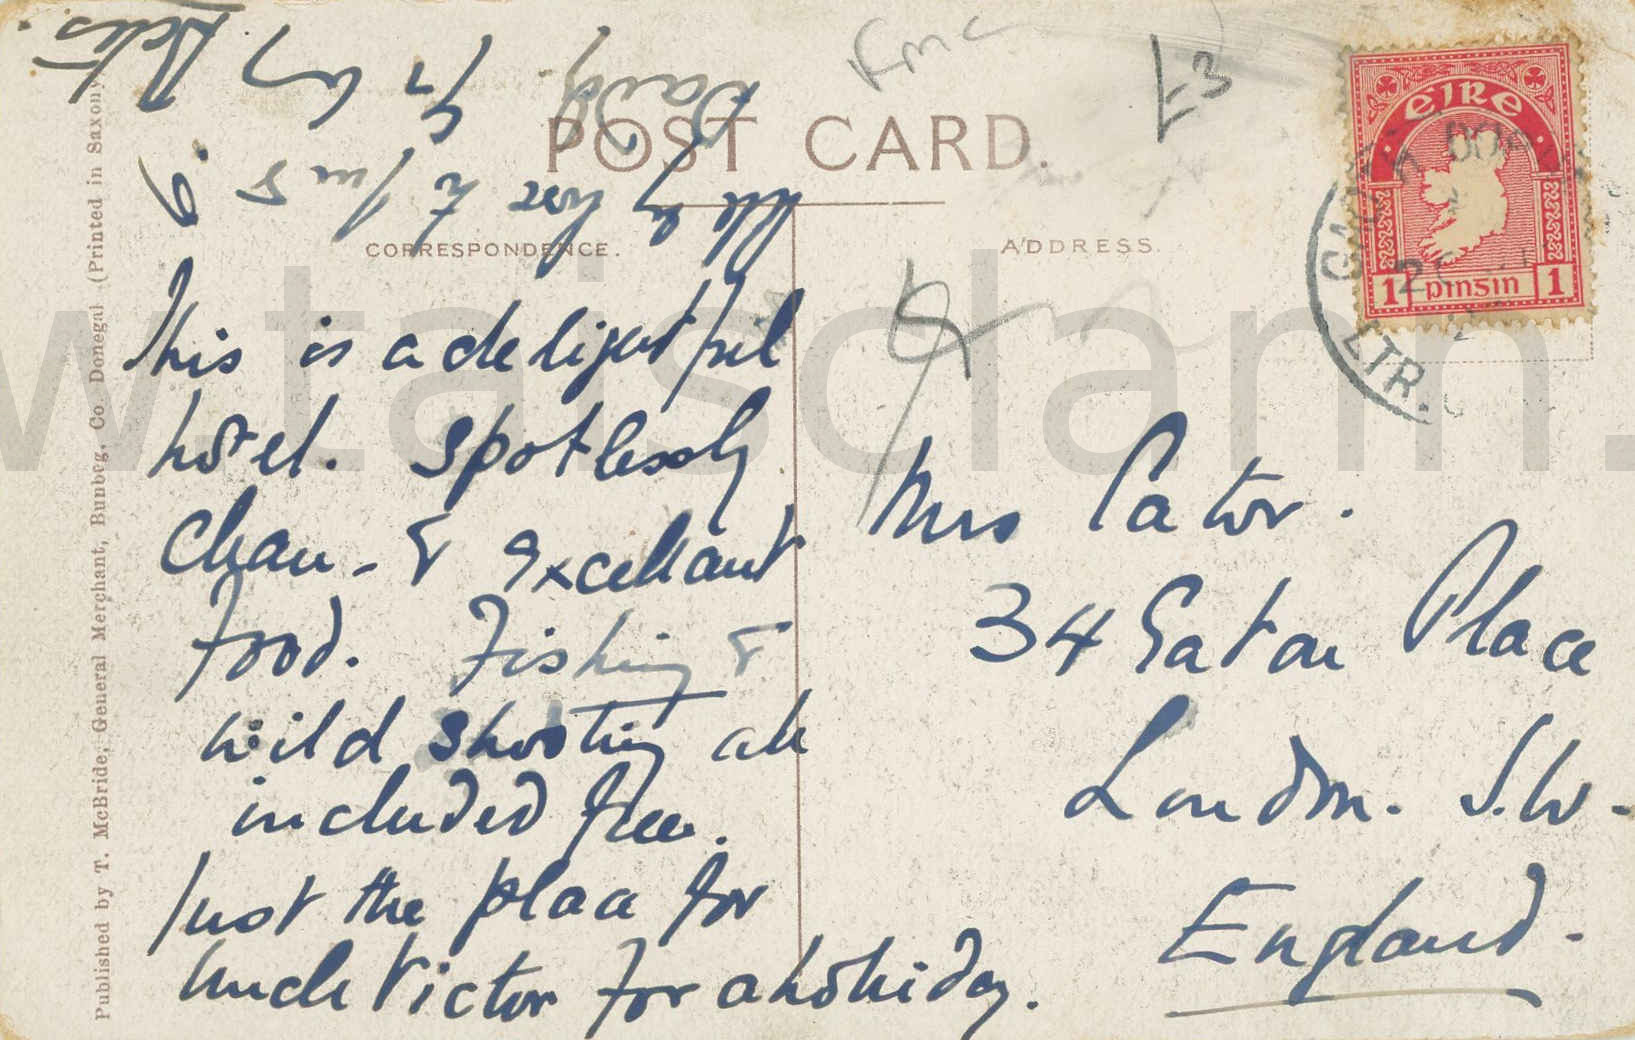 POST CARD.
CORRESPONDENCE.
ADDRESS.
This is a delightful
hotel. Spotlessly
Clean - & excellant
food. Fishing &
wild shooting all
included free.
Just the place for
Uncle Victor for a holiday.
Mrs Cator.
34 Eaton Place
London. S.W.
England.
£3
EIRE
1 pinsin 1
LTR.
Published by T. McBride, General Merchant, Bunbeg, Co. Donegal (Printed in Saxony)
w.taisclann.